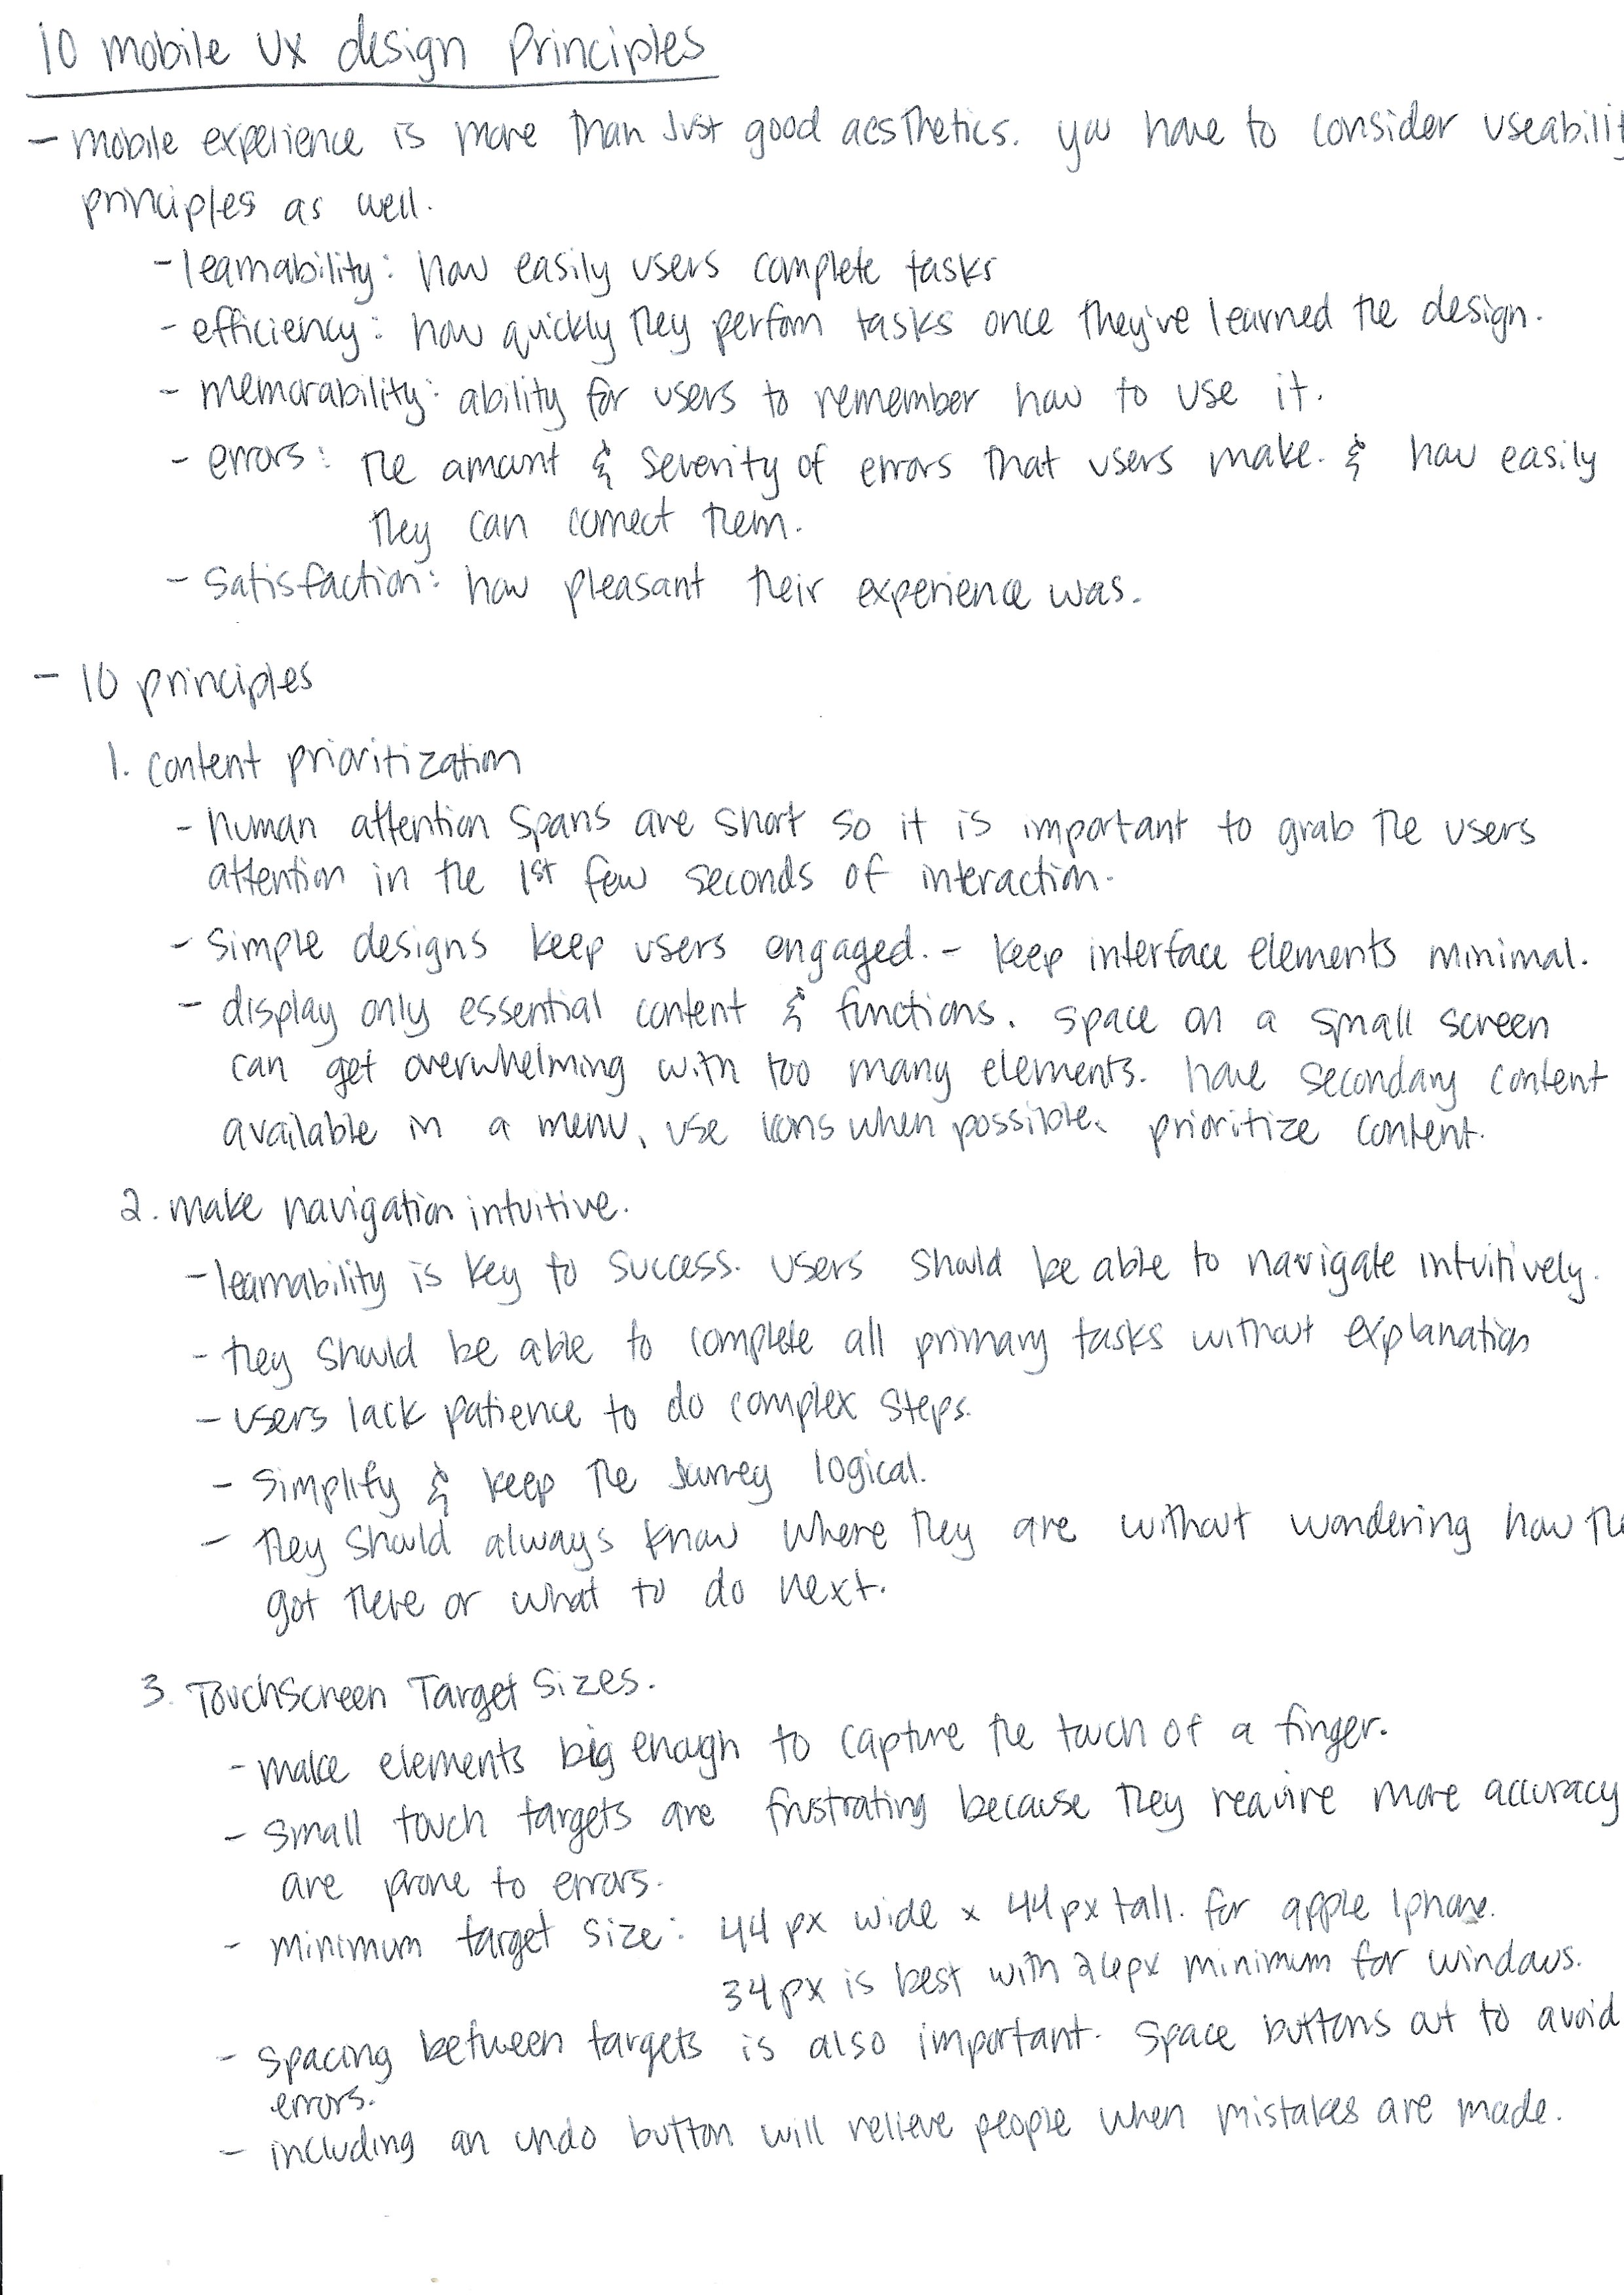 10 mobile UX design principles
- mobile experience is more than just good aesthetics. you have to consider useabilit
principles as well.
- learnability: how easily users complete tasks
- efficiency: how quickly they perform tasks once they've learned the design.
- memorability: ability for users to remember how to use it.
- errors: the amount & severity of errors that users make. & how easily
they can correct them.
- satisfaction: how pleasant their experience was.
- 10 principles
1. content prioritization
- human attention spans are short so it is important to grab the users
attention in the 1st few seconds of interaction.
- simple designs keep users engaged. - keep interface elements minimal.
- display only essential content & functions. space on a small screen
can get overwhelming with too many elements. have secondary content
available in a menu, use icons when possible. prioritize content.
2. make navigation intuitive.
- learnability is key to success. users should be able to navigate intuitively.
- they should be able to complete all primary tasks without explanation
- users lack patience to do complex steps.
- simplify & keep the journey logical.
- they should always know where they are without wondering how the
got there or what to do next.
3. Touchscreen Target Sizes.
- make elements big enough to capture the touch of a finger.
- small touch targets are frustrating because they require more accuracy
are prone to errors.
- minimum target size: 44 px wide x 44px tall. for apple iphone.
34px is best with 26px minimum for windows.
- spacing between targets is also important. space buttons out to avoid
errors.
- including an undo button will relieve people when mistakes are made.